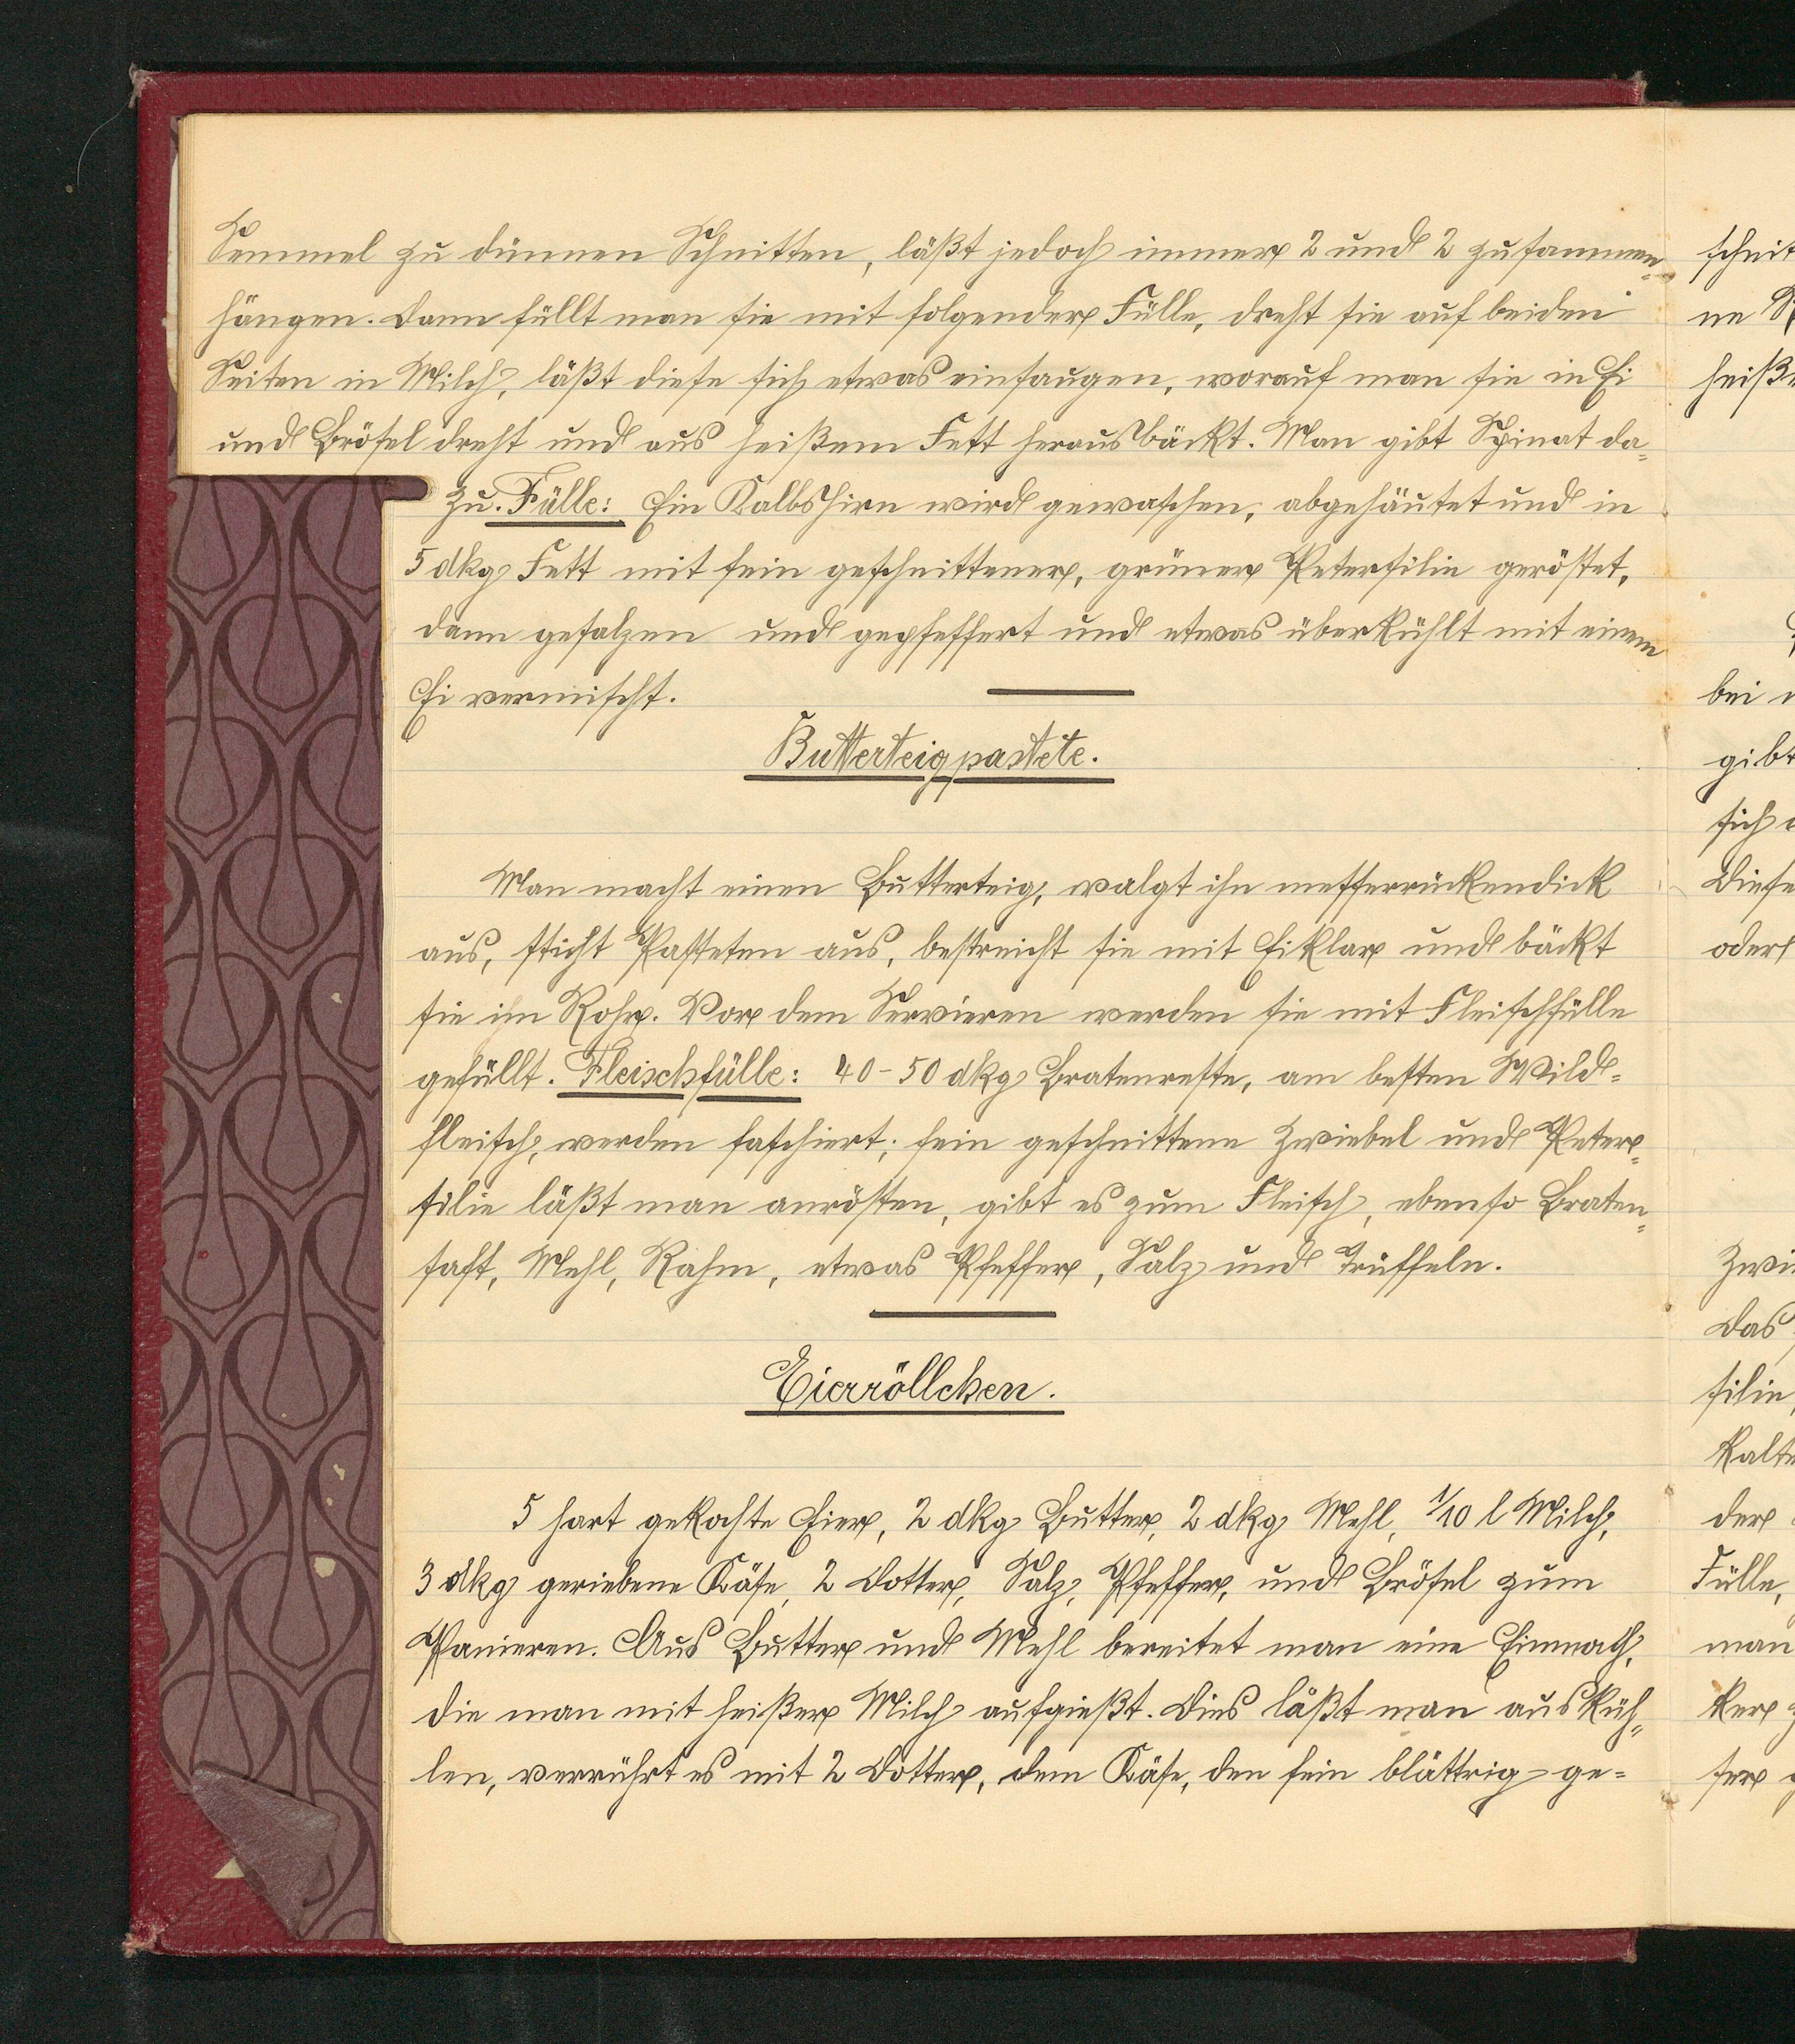 Semmel zu dünnen Schnitten, läßt jedoch immer 2 und 2 zusammen=
hängen. Dann füllt man sie mit folgender Fülle, dreht sie auf beiden
Seiten in Milch, läßt diese sich etwas einsaugen, worauf man sie in Ei
und Brösel dreht und aus heißem Fett herausbäckt. Man gibt Spinat da=
zu. Fülle: Ein Kalbshirn wird gewaschen, abgehäutet und in
5 dkg Fett mit fein geschnittener, grüner Petersilie geröstet,
dann gesalzen und gepfeffert und etwas überkühlt mit einem
Ei vermischt.
Butterteigpastete.
Man macht einen Butterteig, walgt ihn messerrückendick
aus, sticht Pasteten aus, bestreicht sie mit Eiklar und bäckt
sie im Rohr. Vor dem Servieren werden sie mit Fleischfülle
gefüllt. Fleischfülle: 40-50 dkg Bratenreste, am besten Wild=
fleisch, werden faschiert; fein geschnittene Zwiebel und Peter=
silie läßt man anrösten, gibt es zum Fleisch, ebenso Braten=
saft, Mehl, Rahm, etwas Pfeffer, Salz und Trüffeln.
Eierröllchen.
5 hart gekochte Eier, 2 dkg Butter, 2 dkg Mehl, 1/10 l Milch,
3 dkg geriebene Käse, 2 Dotter, Salz, Pfeffer, und Brösel zum
Panieren. Aus Butter und Mehl bereitet man eine Einmach,
die man mit heißer Milch aufgießt. Dies läßt man ausküh=
len, verrührt es mit 2 Dotter, dem Käse, den fein blättrig ge=
schnit
ne
heiße
bei
gibt
sich
Diese
oder
Zwie
Das
silie,
kalte
der
Fülle,
man
ker
ser